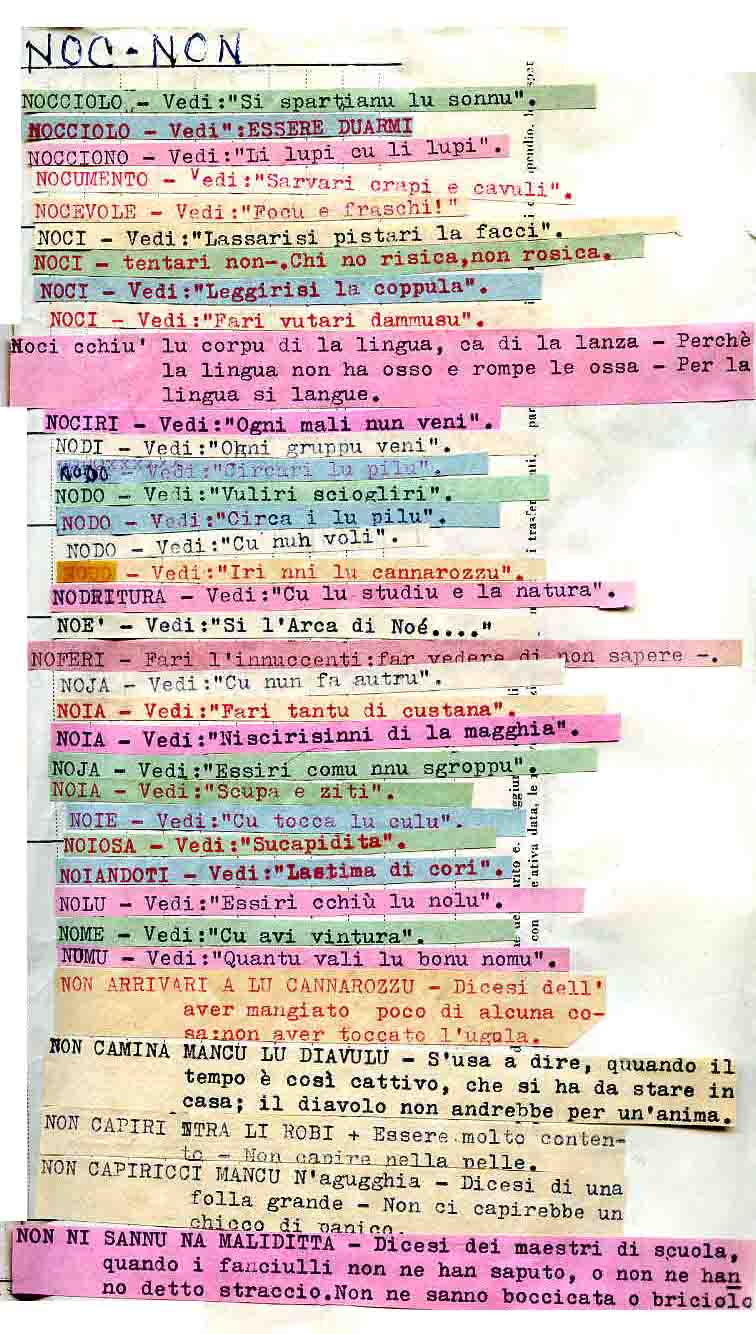 NOC-NON
NOCCIOLO - Vedi:"Si spartianu lu sonnu".
NOCCIOLO - Vedi":ESSERE DUARMI
NOCCIONO - Vedi:"Li lupi cu li lupi".
NOCUMENTO - Vedi:"Sarvari crapi e cavuli".
NOCEVOLE - Vedi:"Focu e fraschi!"
NOCI - Vedi:"Lassarisi pistari la facci".
NOCI - tentari non-.Chi no risica,non rosica.
NOCI - Vedi:"Leggirisi la coppula".
NOCI - Vedi:"Fari vutari dammusu".
Noci cchiu' lu corpu di la lingua, ca di la lanza - Perchè
la lingua non ha osso e rompe le ossa - Per la
lingua si langue.
NOCIRI - Vedi:"Ogni mali nun veni".
NODI - Vedi:"Ogni gruppu veni".
NODO - Vedi:"Circari lu pilu".
NODO - Vedi:"Vuliri sciogliri".
NODO - Vedi:"Circa i lu pilu".
NODO - Vedi:"Cu nuh voli".
- Vedi:"Iri nni lu cannarozzu".
NODRITURA - Vedi:"Cu lu studiu e la natura".
NOE' - Vedi:"Si l'Arca di Noé...."
NOFERI - Fari l'innuccenti:far vedere di non sapere -.
NOJA - Vedi:"Cu nun fa autru".
NOIA - Vedi:"Fari tantu di custana".
NOIA - Vedi:"Niscirisinni di la magghia".
NOJA - Vedi:"Essiri comu nnu sgroppu".
NOIA - Vedi:"Scupa e ziti".
NOIE - Vedi:"Cu tocca lu culu".
NOIOSA - Vedi:"Sucapidita".
NOIANDOTI - Vedi:"Lastima di cori".
NOLU - Vedi:"Essiri cchiù lu nolu".
NOME - Vedi:"Cu avi vintura".
NUMU - Vedi:"Quantu vali lu bonu nomu".
NON ARRIVARI A LU CANNAROZZU - Dicesi dell'
aver mangiato poco di alcuna co-
sa:non aver toccato l'ugola.
NON CAMINA MANCU LU DIAVULU - S'usa a dire, quuando il
tempo è così cattivo, che si ha da stare in
casa; il diavolo non andrebbe per un'anima.
NON CAPIRI NTRA LI ROBI + Essere molto conten-
to - Non capire nella pelle.
NON CAPIRICCI MANCU N'agugghia - Dicesi di una
folla grande - Non ci capirebbe un
chicco di panico.
NON NI SANNU NA MALIDITTA - Dicesi dei maestri di scuola,
quando i fanciulli non ne han saputo, o non ne han
no detto straccio.Non ne sanno boccicata o briciolo